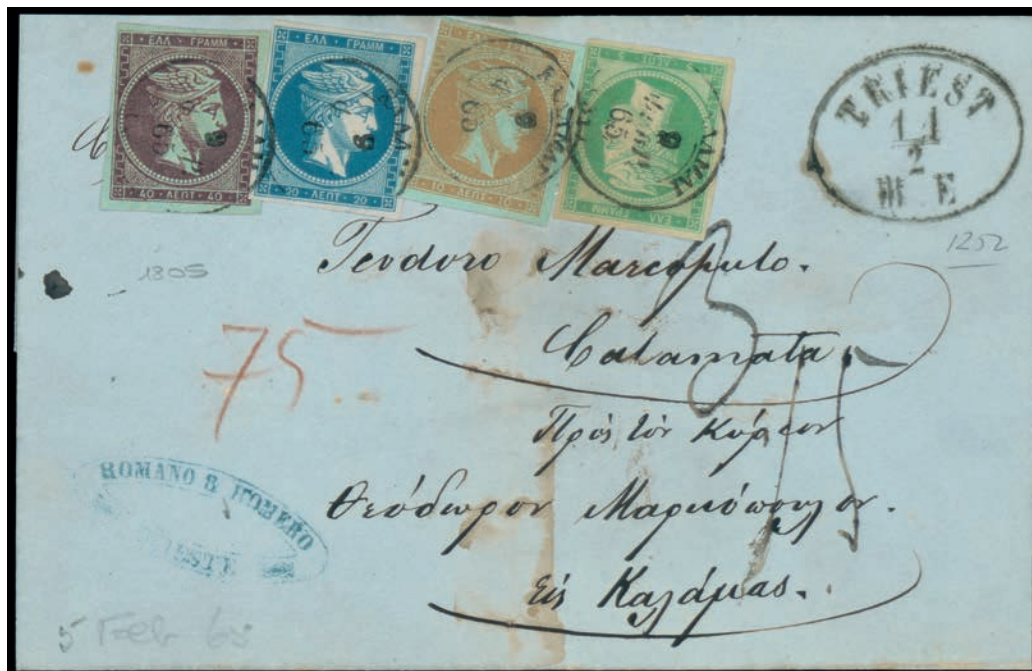 ΕΛΛ · ΓΡΑΜΜ
40 · ΛΕΠΤ · 40
ΕΛΛ · ΓΡΑΜΜ
20 · ΛΕΠΤ · 20
ΕΛΛ · ΓΡΑΜΜ
10 · ΛΕΠΤ · 10
5 · ΛΕΠΤ · 5
ΕΛΛ · ΓΡΑΜΜ
65
65
65
65
TRIEST
11
2
E
1252
1805
Teodoro Marcopulo.
75
Calamata.
Πρὸς τὸν Κύριον
Θεόδωρον Μαρκόπουλον.
Εἰς Καλάμας.
ROMANO & HOMERO
TRIESTE
5 Feb 65